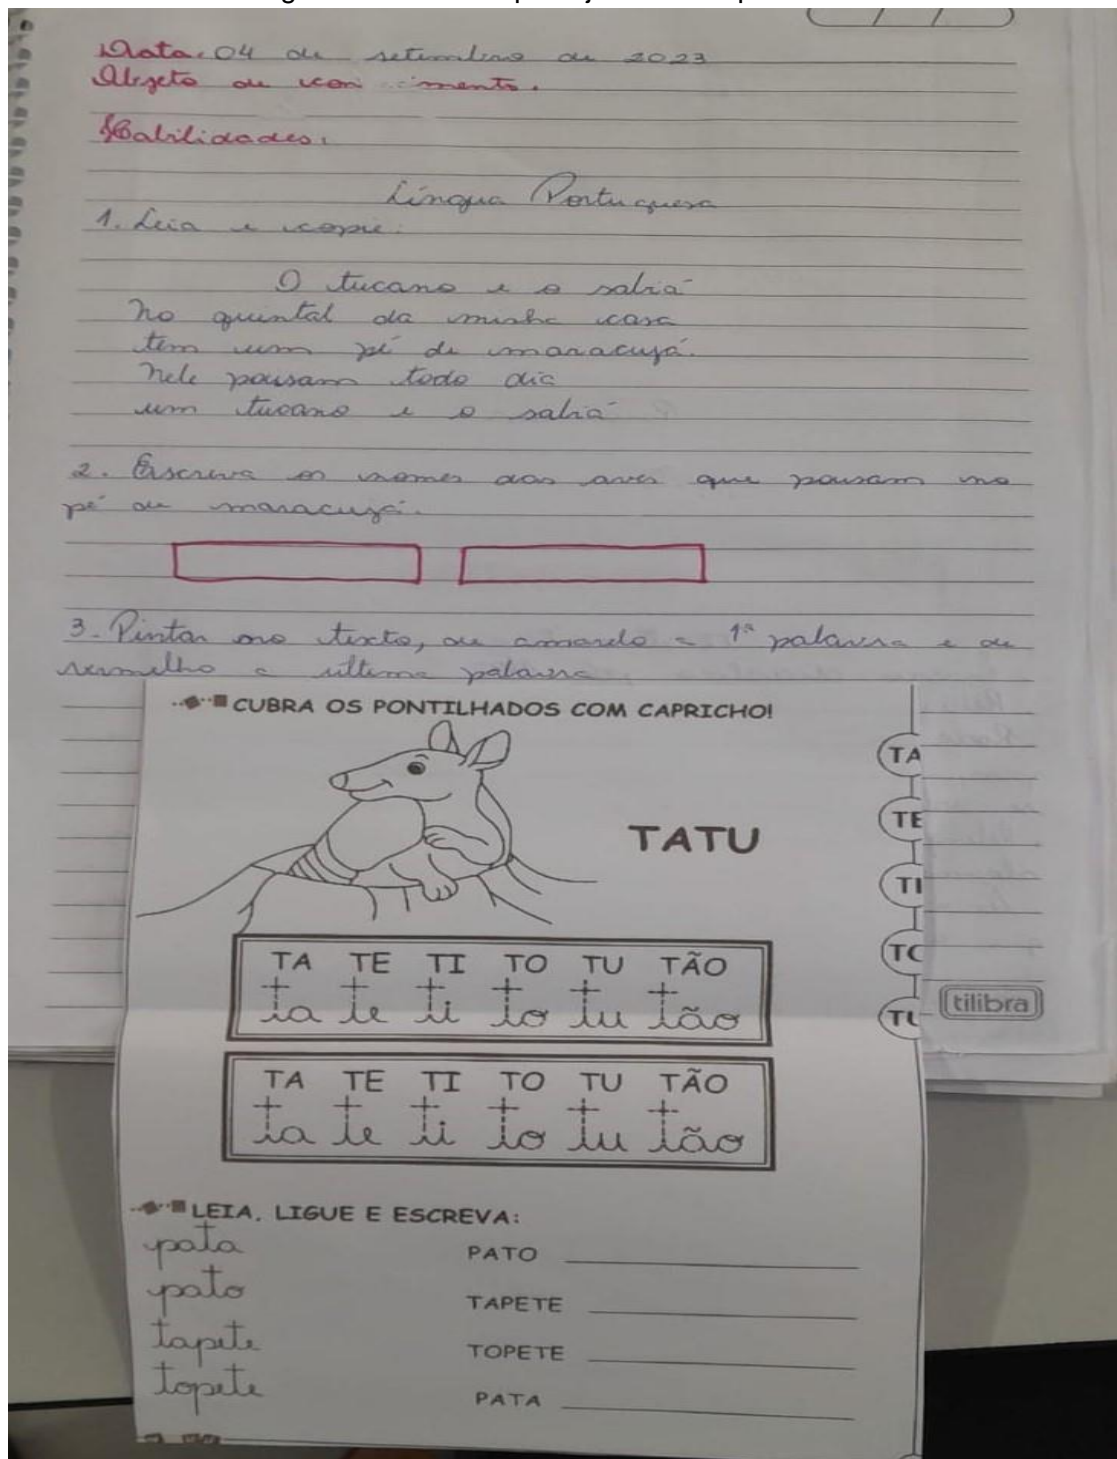 Data: 04 de setembro de 2023
Objeto de con cimento.
Habilidades:
Língua Portuguesa
1. Leia e copie.
O tucano e o sabiá
No quintal da minha casa
tem um pé de maracujá.
Nele pousam todo dia
um tucano e o sabiá
2. Escreva os nomes das aves que pousam no
pé de maracujá.
3. Pintar no texto, de amarelo a 1ª palavra e de
vermelho a última palavra
CUBRA OS PONTILHADOS COM CAPRICHO!
TATU
TA
TE
TI
TO
TU
TA TE TI TO TU TÃO
ta te ti to tu tão
TA TE TI TO TU TÃO
ta te ti to tu tão
tilibra
LEIA, LIGUE E ESCREVA:
pata PATO
pato TAPETE
tapete TOPETE
topete PATA